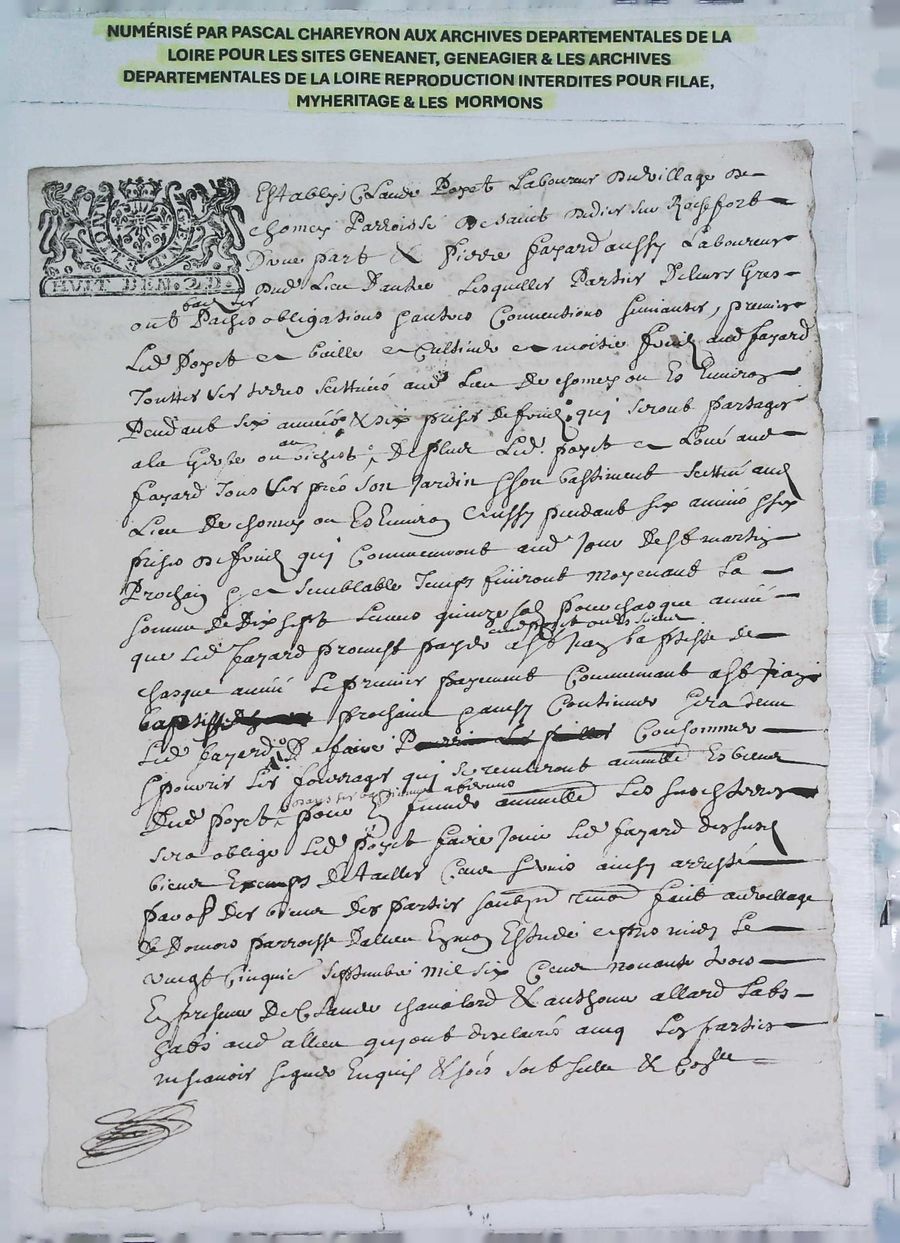 NUMÉRISÉ PAR PASCAL CHAREYRON AUX ARCHIVES DEPARTEMENTALES DE LA
LOIRE POUR LES SITES GENEANET, GENEAGIER & LES ARCHIVES
DEPARTEMENTALES DE LA LOIRE REPRODUCTION INTERDITES POUR FILAE,
MYHERITAGE & LES MORMONS
HUIT DEN. 2.D.
Establys Claude Poyet Laboureur du village de
chomey Parroisse de saint didier sur Rochefort
D'une part & pierre fayard aussy Laboureur
dud Lieu D'autre Lesquelles Parties De leurs Gres
ont Pachés obligations & autres Conventions suivantes, premier
Led poyet en baille en moitie fruict aud fayard
Touttes ses terres scittuées aud Lieu de chomey ou Es Environs
Pendant six années & six prises de fruict qui seront partagés
a la Gerbe ou au bichet De plus Led. poyet en Loue aud
fayard Tous ses prés son Jardin & son bastiment scittué aud
Lieu de chomey ou Es Environ Aussy pendant six années & six
prises de fruict qui Commenceront aud Jour de st martin
Prochain & a semblable Temps finiront moyenant La
somme de Dix sept Livres quinze sols pour chasque année
que Led fayard promest payer aud poyet a st Jean baptiste de
chasque année Le premier payement Commencant a st Jean
prochain & ainsy Continuer sera tenu
Led fayard De faire Consommer
& pourrir Les fourrages qui se recuilliront annuellement Es biens
Dud poyet pour annuellement Les terres
sera oblige Led poyet faire Jouir Led fayard desdits
biens Exempts de tailles ainsy arresté
des biens des parties fait au village
de Domois parroisse Dallieu En mon Estude apres midy Le
vingt Cinquie septembre mil six Cent nonante trois
En presence De Claude chavalard & anthoine allard Labs
habs aud allieu qui ont desclairés avec Les parties
ne scavoir signer Enquis &